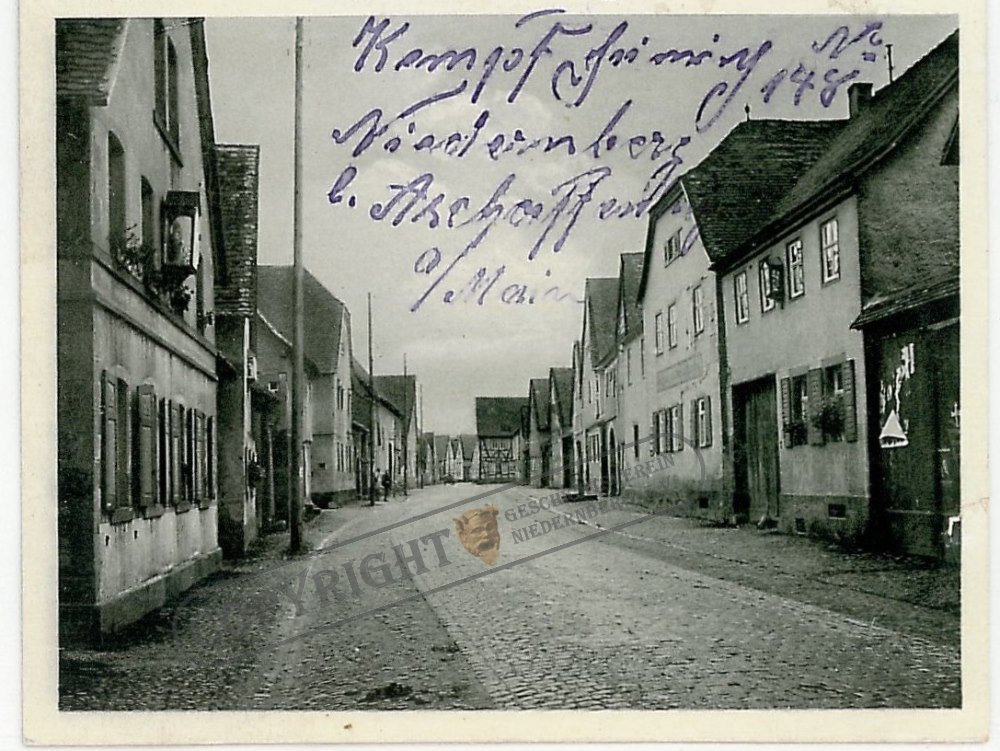 Kempf Heinrich Nr
148
Niedernberg
b. Aschaffenburg
a/Main
COPYRIGHT
GESCHICHTSVEREIN
NIEDERNBERG